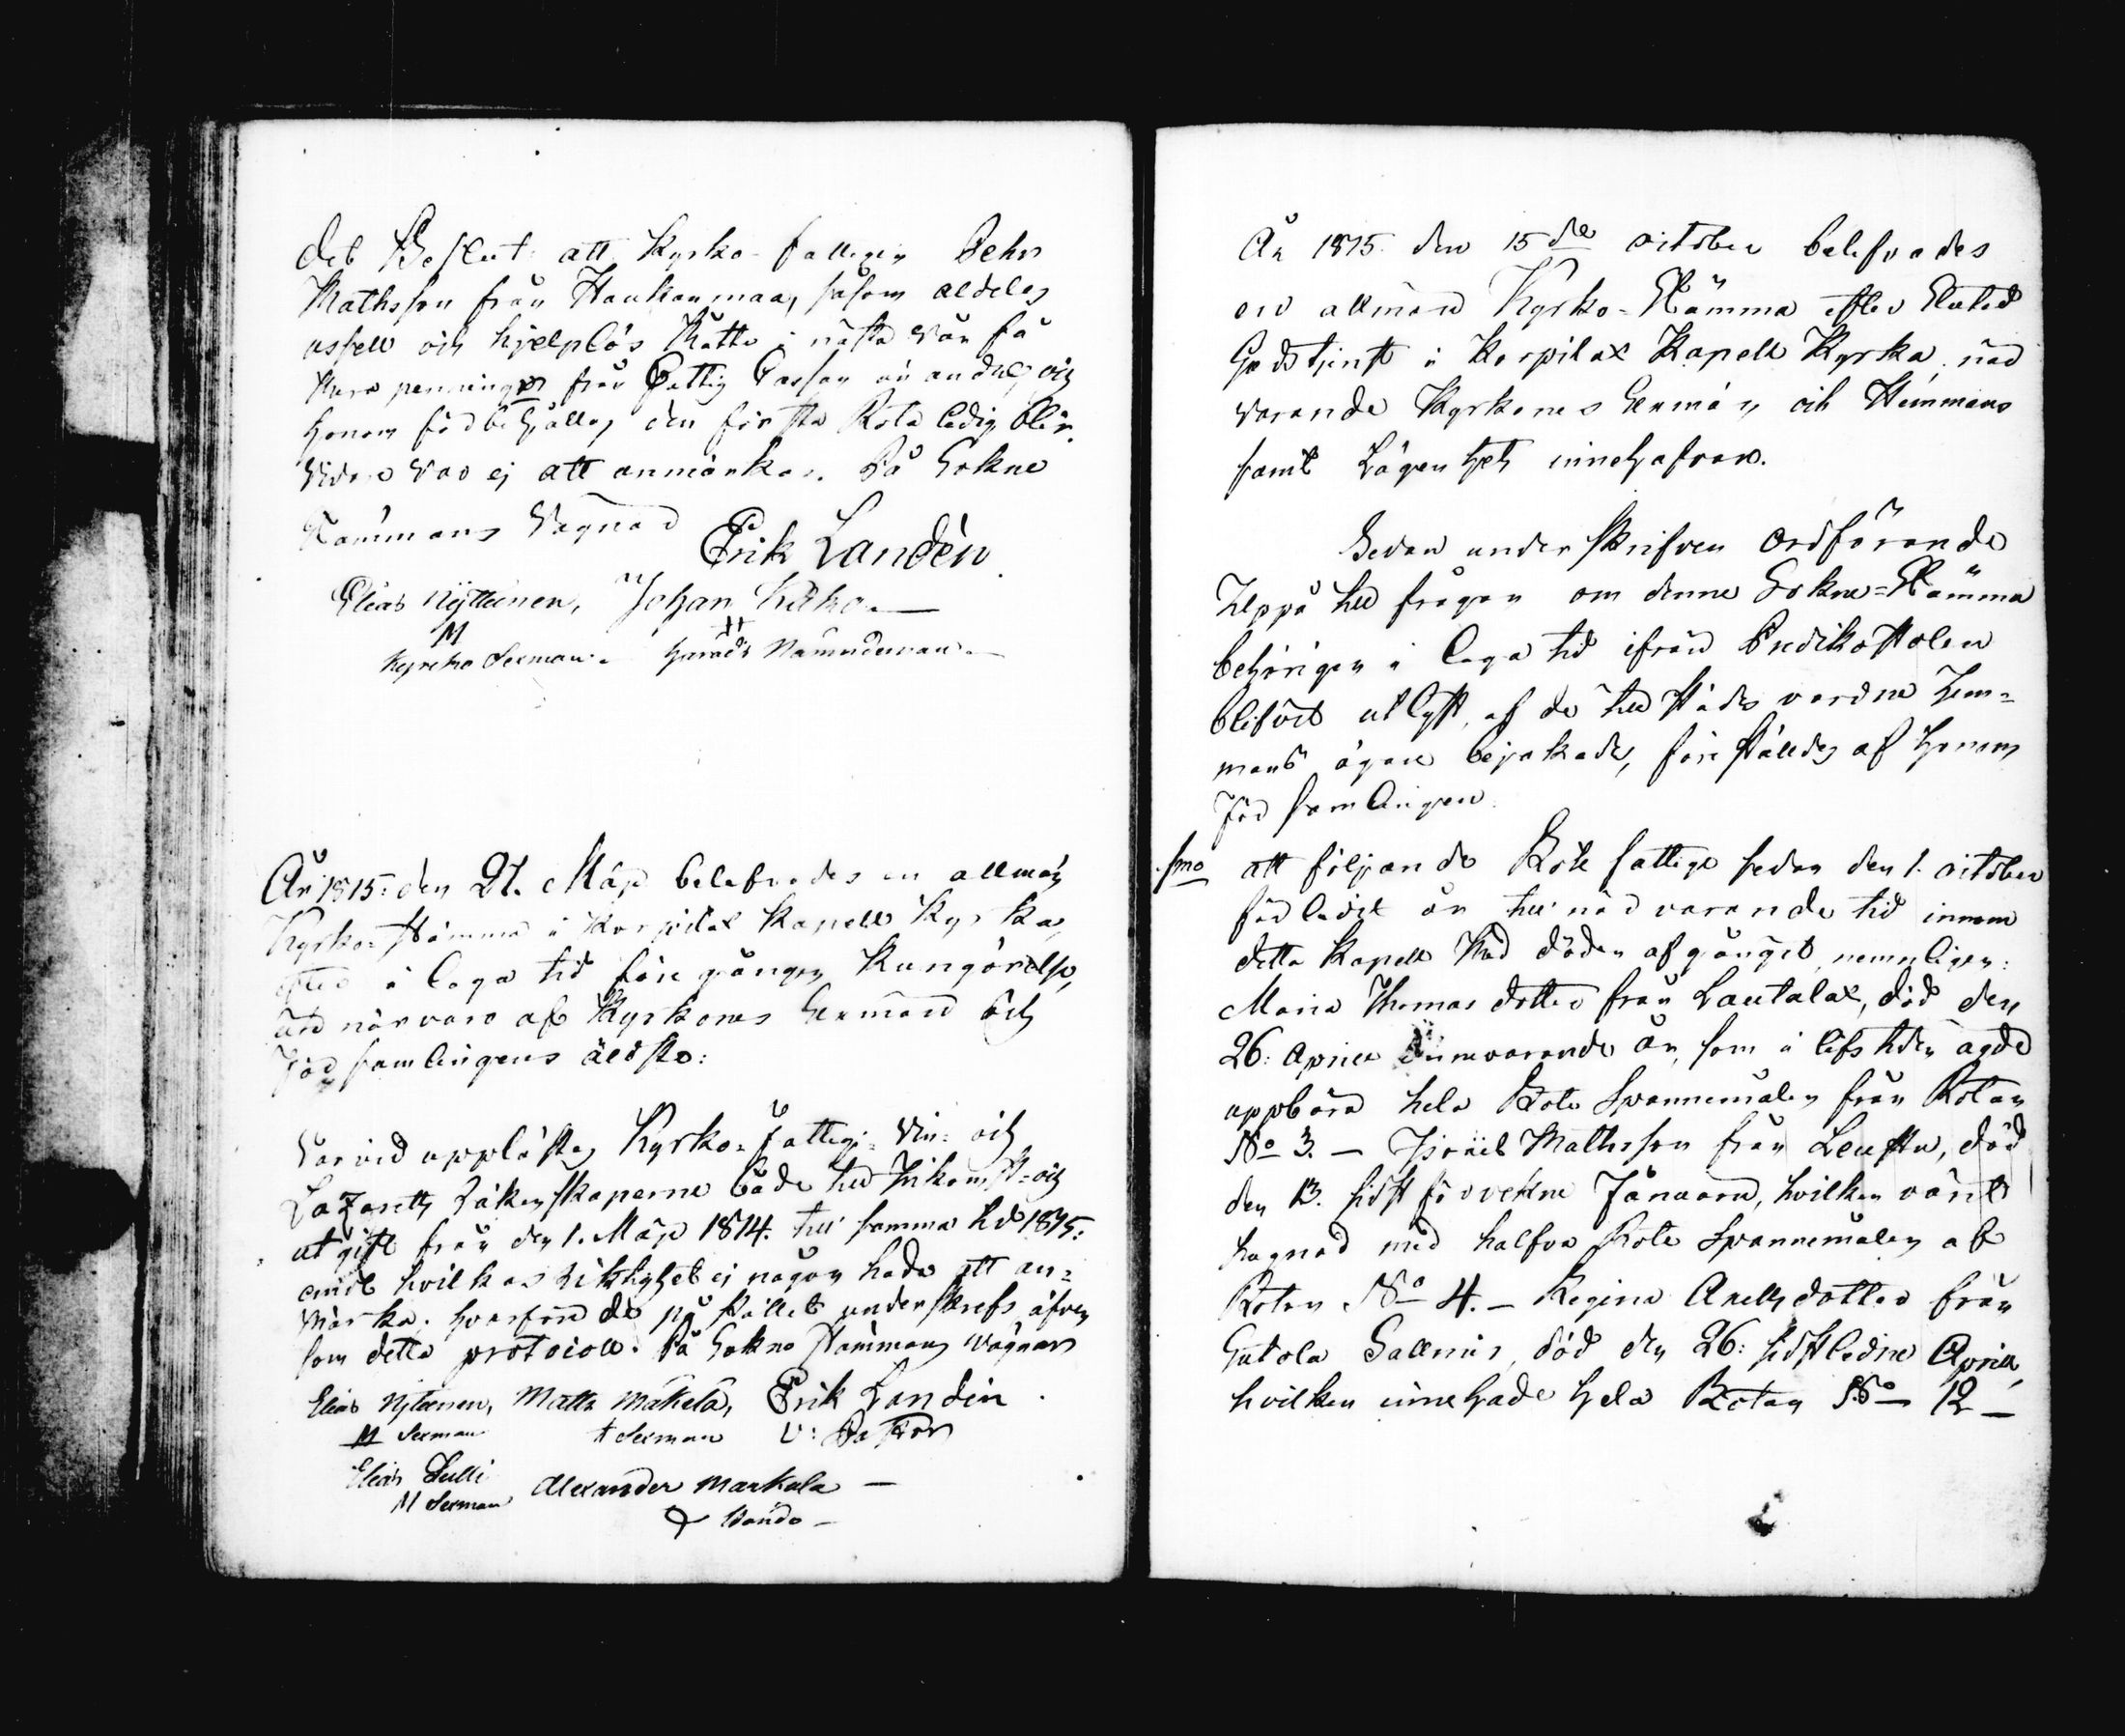 det Beslut: att Kyrko-fattigen Pehr
Mathsson från Haukanmaa, såsom aldeles
ussell och hjelplös skulle i nästa vår få
penningar från Fattig Cassan och
honom förbehålles den första Rote ledig blir.
Vidare var ej att anmärka. På Sokne
Stämmans Vägnar
Erik Landén
Elias Nyttinen, Johan
M
Kyrko Sexman. Härads Nämndeman.
År 1815: den 21. Maji belefvades en allmän
Kyrko-stämma i Korpilax Kapell Kyrka,
efter i laga tid före gången Kungörelse,
närvaro af Kyrkones Sexmän och
Församlingens äldste:
Varvid upplästes Kyrko- Fattig- Vin- och
Lazaretts Räkenskaperne både till Inkomst- och
utgift från den 1. Maji 1814. till samma tid 1815:
emot hvilkas riktighet ej någon hade att an-
märka. hvarföre de på stället underskrefs, äfven
som detta protocoll. På Sokne Stämmans vägnar
Elias Nytinen, Matts Mäkelä, Erik Landén.
M Sexman + Sexman V: Pastor
Elias Lulli Alexander Markula —
M Sexman Bonde —
År 1815 den 15de October belefvades
en allmän Kyrko-Stämma efter slutad
Gudstjenst i Korpilax Kapell Kyrka, när
varande Kyrkones Sexmän och Hemmans
samt Lägenhets innehafvare.
Sedan underskrifven Ordförande
uppå till frågan om denne Sokne-Stämma
behörigen i laga tid ifrån Predikostolen
blifvit utlyst, af de tillstädes vardne Hem-
mans ägare bejakades, föreställdes af honom
Församlingen
1mo att följande Rote fattige sedan den 1. October
förledit år till närvarande tid innom
detta Kapell med döden afgånget, nemligen:
Maria Thomas dotter från Lautalax, död den
26: April innevarande år, som i lifstiden ägde
uppbära hela Rote Spannemålen från Rotan
No 3. — Israel Mathsson från Leustu, död
den 13. sidst förvekne Januari, hvilken varit
hugnad med halfva Rote Spannemålen af
Rotan No 4. — Regina Axelsdotter från
Sutola Sallmis, död den 26: sidstledne April,
hvilken innehade hela Rotan No 12 —